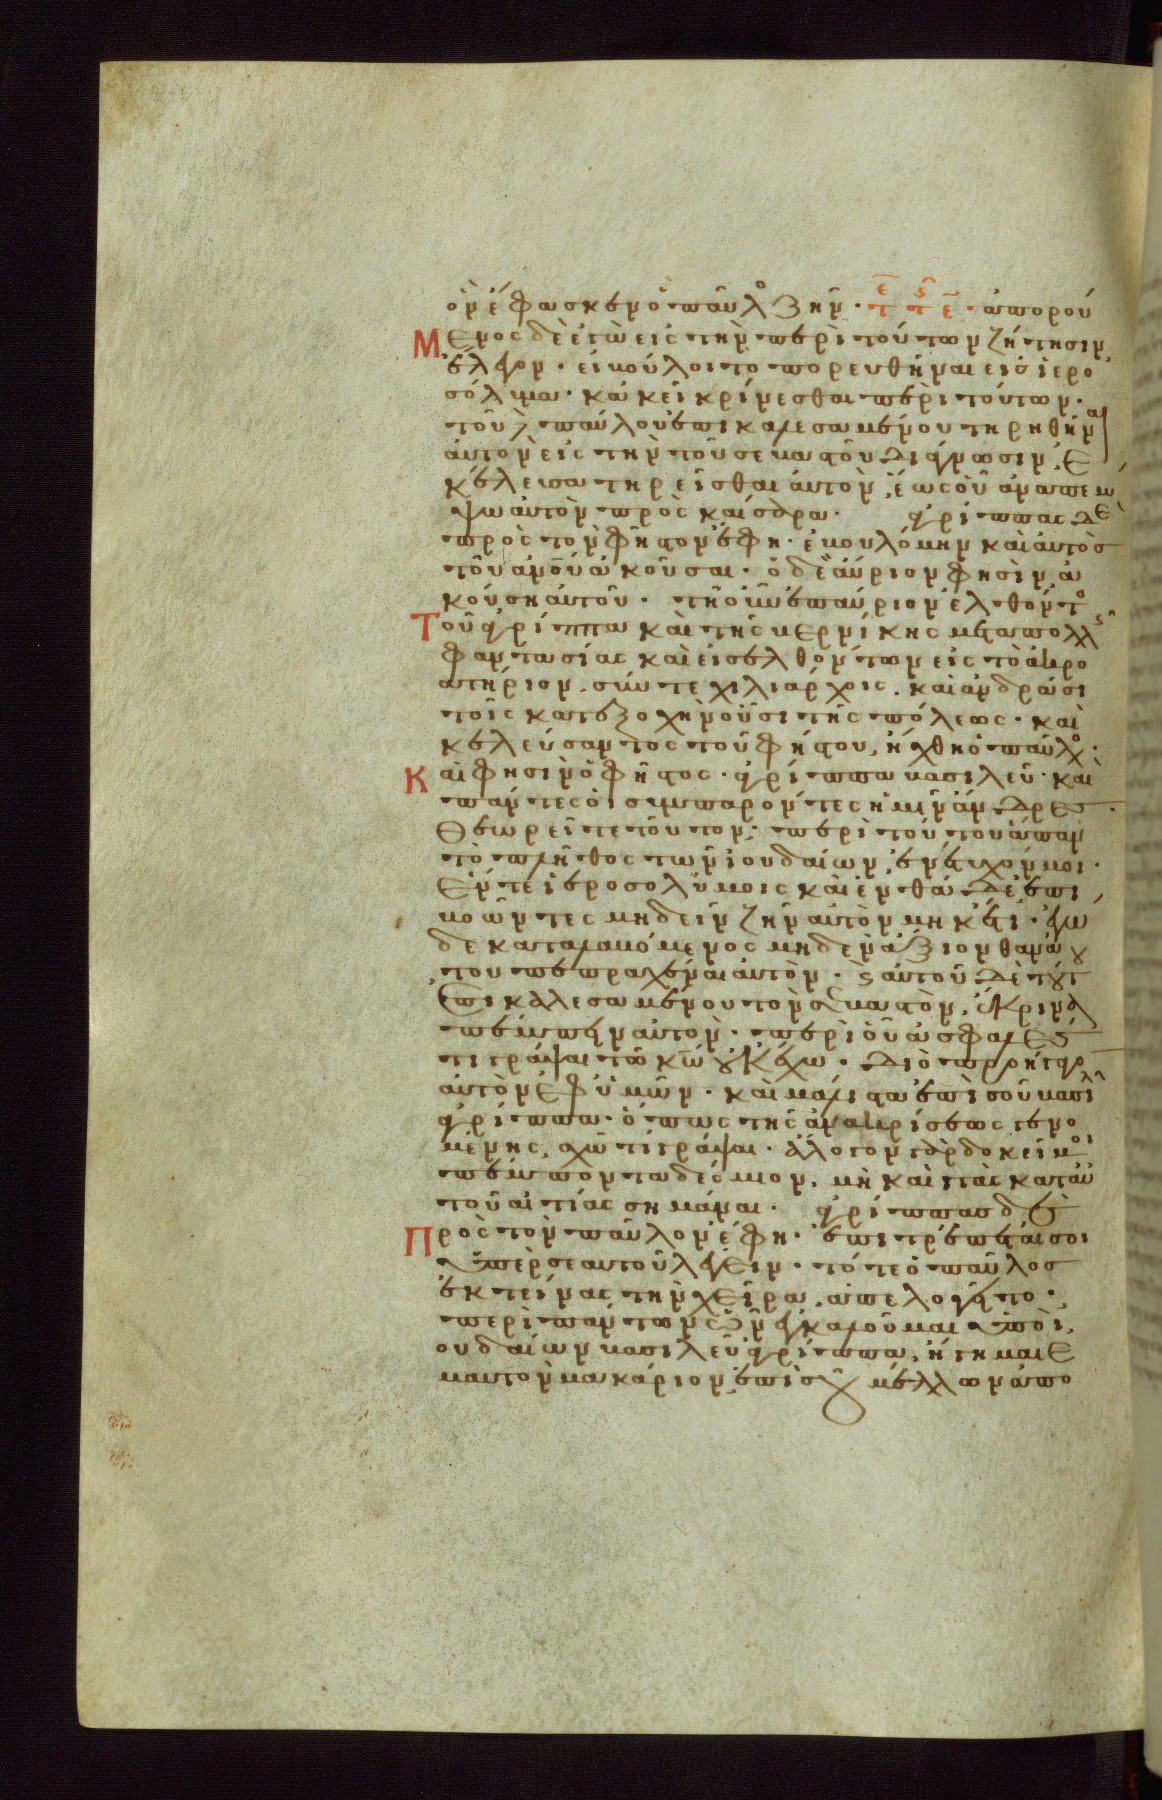 ὃν ἔφασκεν ὁ παῦλος ζῆν· τ τ ε · ἀπορού
Μενος δὲ ἐγὼ εἰς τὴν περὶ τούτων ζήτησιν
ἔλεγον· εἰ βούλοιτο πορευθῆναι εἰς ἱερο
σόλυμα· κἀκεῖ κρίνεσθαι περὶ τούτων·
τοῦ δὲ παύλου ἐπικαλεσαμένου τηρηθῆναι
αὐτὸν εἰς τὴν τοῦ σεβαστοῦ διάγνωσιν, ἐ
κέλευσα τηρεῖσθαι αὐτὸν, ἕως οὗ ἀναπέμ
ψω αὐτὸν πρὸς καίσαρα· ἀγρίππας δὲ
πρὸς τὸν φῆστον ἔφη· ἐβουλόμην καὶ αὐτὸς
τοῦ ἀνου ἀκοῦσαι· ὁ δὲ αὔριον φησὶν, ἀ
κούση αὐτοῦ· τῆ οὖν ἐπαύριον ἐλθόντος
Τοῦ ἀγρίππα καὶ τῆς βερνίκης μετὰ πολλῆς
φαντασίας καὶ εἰσελθόντων εἰς τὸ ἀκρο
ατήριον, σύν τε χιλιάρχοις, καὶ ἀνδράσι
τοῖς κατεξοχὴν οὖσι τῆς πόλεως· καὶ
κελεύσαντος τοῦ φήστου, ἤχθη ὁ παῦλος·
Καί φησιν ὁ φῆστος· ἀγρίππα βασιλεῦ· καὶ
πάντες οἱ συμπαρόντες ἡμῖν ἄνδρες·
Θεωρεῖτε τοῦτον· περὶ τούτου ἅπαν
τὸ πλῆθος τῶν ἰουδαίων, ἐνέτυχόν μοι·
Ἔν τε ἱεροσολύμοις καὶ ἐνθάδε ἐπι
βοῶντες μὴ δεῖν ζῆν αὐτὸν μηκέτι· ἐγὼ
δὲ καταλαβόμενος μηδὲν ἄξιον θανά
του πεπραχέναι αὐτὸν· καὶ αὐτοῦ δὲ τούτου
ἐπικαλεσαμένου τὸν σεβαστὸν, ἔκρινα
πέμπειν αὐτὸν· περὶ οὗ ἀσφαλές
τι γράψαι τῶ κω οὐκ ἔχω· διὸ προήγαγον
αὐτὸν ἐφ ὑμῶν· καὶ μάλιστα ἐπὶ σοῦ βασιλεῦ
ἀγρίππα· ὅπως τῆς ἀνακρίσεως γενο
μένης, σχῶ τι γράψαι· ἄλογον γὰρ δοκεῖ μοι
πέμποντα δέσμιον, μὴ καὶ τὰς κατ αὐ
τοῦ αἰτίας σημᾶναι· ἀγρίππας δὲ
Πρὸς τὸν παῦλον ἔφη· ἐπιτρέπεταί σοι
ὑπὲρ σεαυτοῦ λέγειν· τότε ὁ παῦλος
ἐκτείνας τὴν χεῖρα, ἀπελογεῖτο·
περὶ πάντων ὧν ἐγκαλοῦμαι ὑπὸ ἰ
ουδαίων βασιλεῦ ἀγρίππα, ἥγημαι ἐ
μαυτὸν μακάριον, ἐπὶ σοῦ μέλλων ἀπο